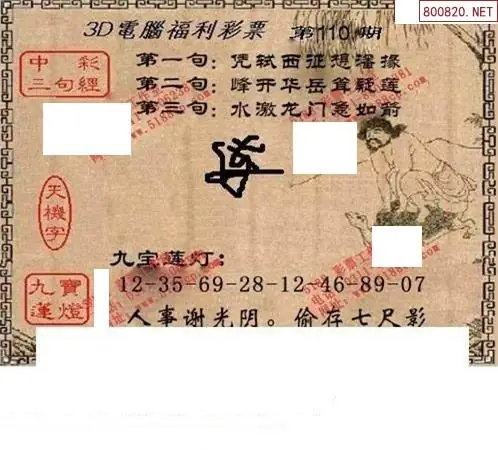 800820.NET
3D電腦福利彩票 第110期
中彩
三句經
第一句：凭轼西征想潘掾
第二句：峰开华岳耸疑莲
第三句：水激龙门急如箭
天機字
九宝莲灯：
九寶
蓮燈
12-35-69-28-12-46-89-07
人事谢光阴。偷存七尺影